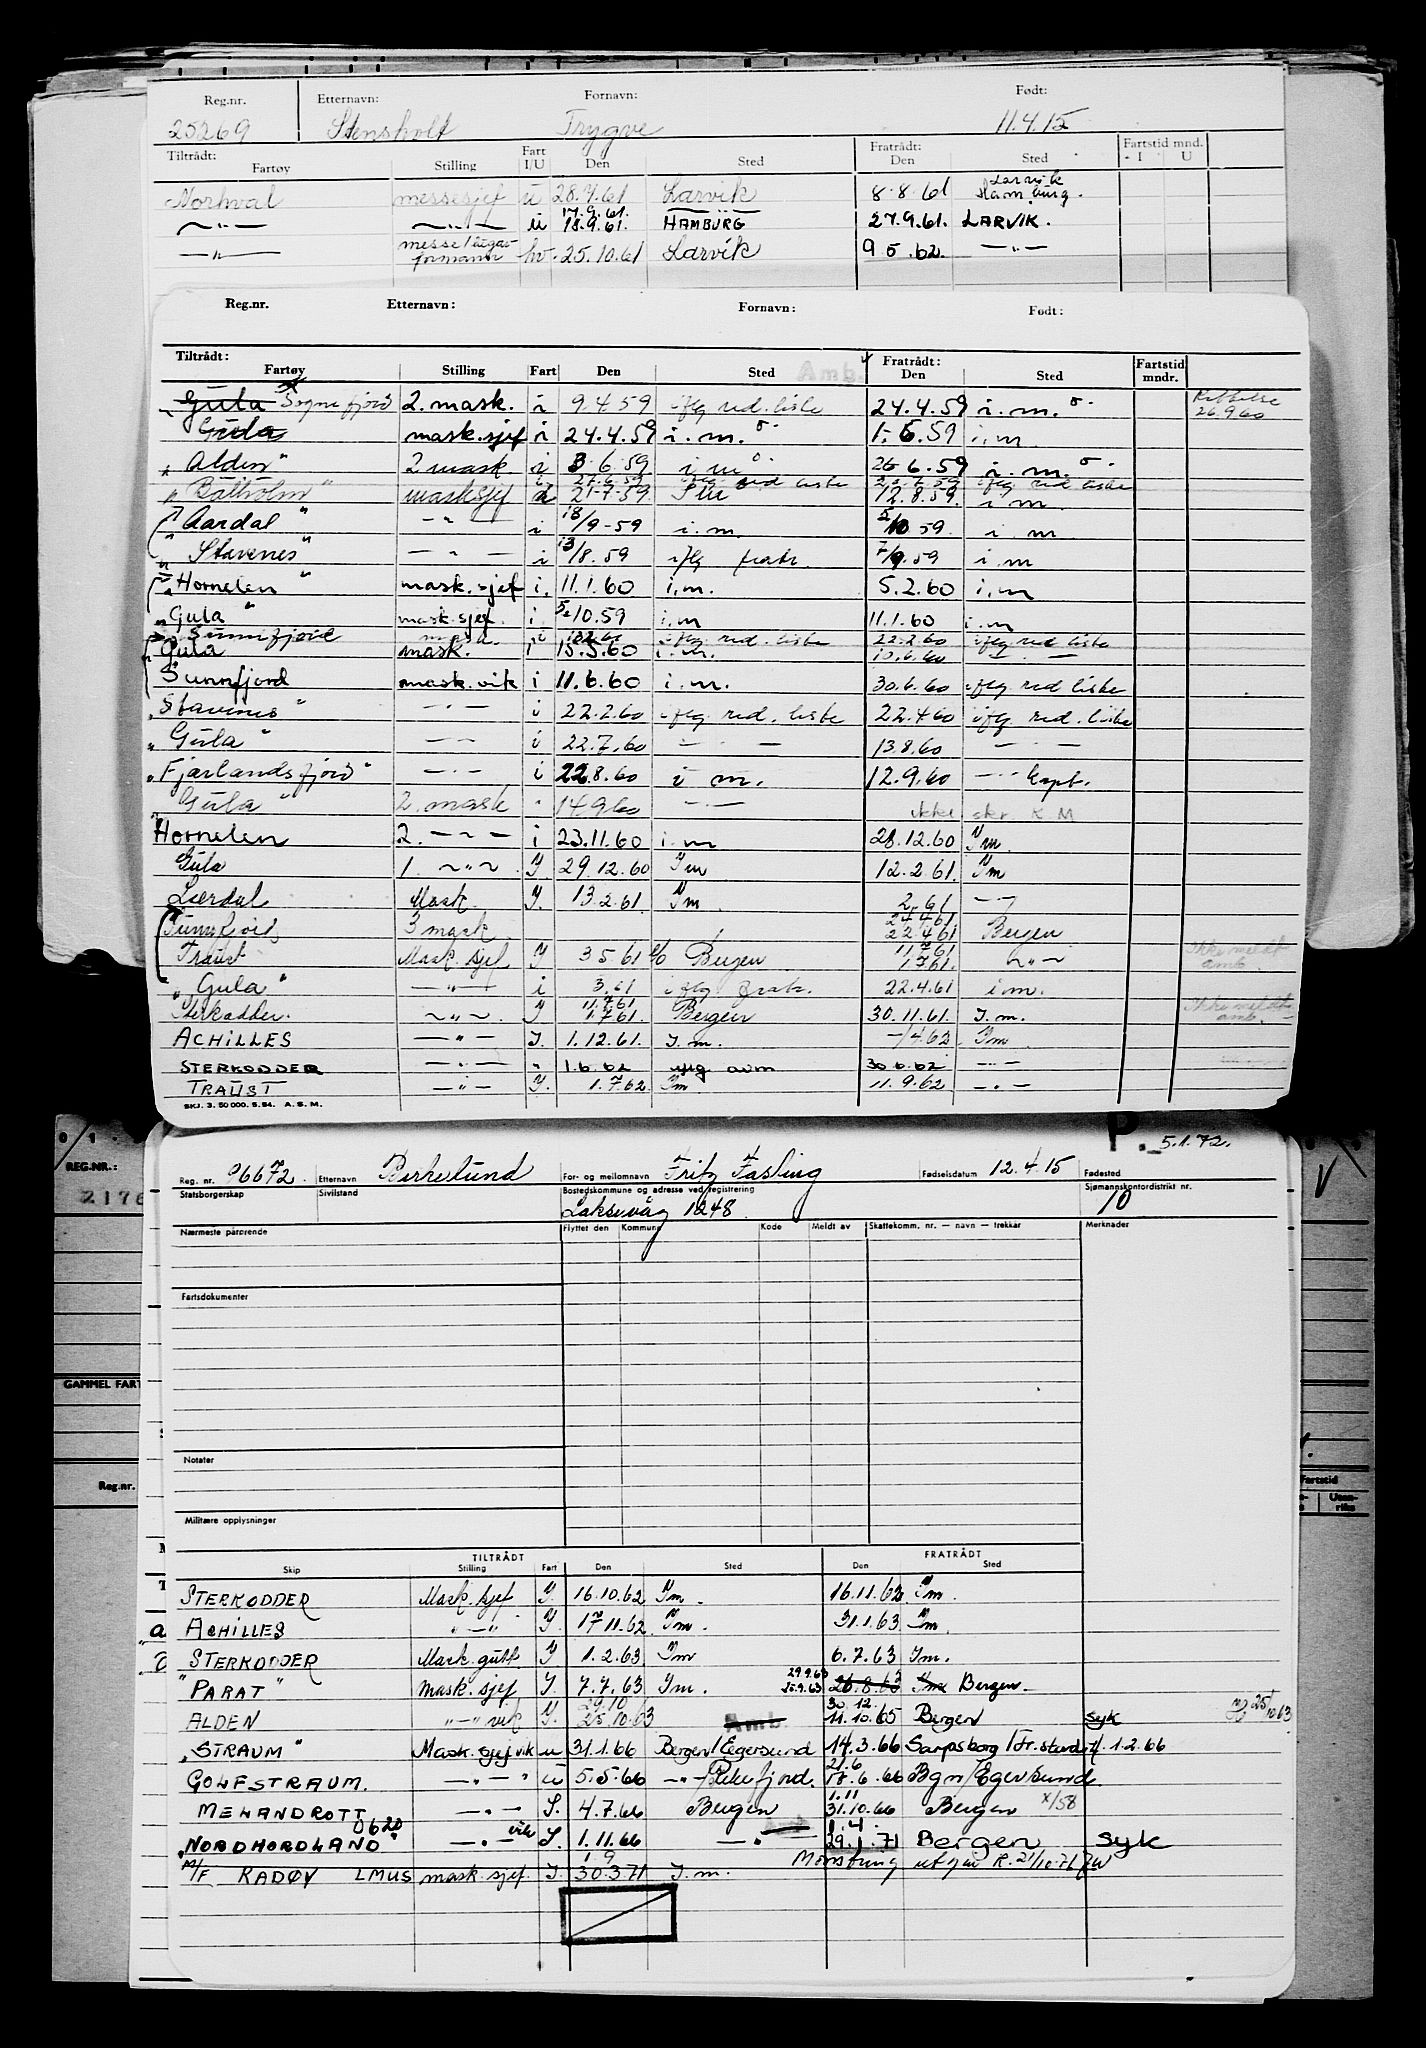 Reg.nr. Etternavn: Fornavn: Født:
25269 Stensholt Trygve 11.4.15
Tiltrådt: Fart Fratrådt: Fartstid mnd.
Fartøy Stilling I/U Den Sted Den Sted I U
Norhval messesjef u 28.4.61 Larvik 8.8.61 Larvik Hamburg.
—"— —"— u 17.9.61. 18.9.61. HAMBURG 27.9.61. LARVIK.
—"— messe/lugar-formann hv. 25.10.61 Larvik 9 5.62. —"—
Reg.nr. Etternavn: Fornavn: Født:
Tiltrådt: Amb. Fratrådt: Fartstid
Fartøy Stilling Fart Den Sted Den Sted mndr.
Gula Sognefjord 2. mask. i 9.4.59 iflg red. liste 24.4.59 i.m. 26.9.60
Gula mask.sjef i 24.4.59 i.m. 1.6.59 i.m
"Alden" 2 mask. i 3.6.59 i m 26.6.59 i.m.
"Balholm" masksjef i 21-7-59 12.8.59. i m
"Aardal" —"— i 18/9-59 i.m. 5/10 59. i m
"Stavenes" —"— i 13/8.59 iflg fratr. 7/9.59 i.m
"Hornelen" mask.sjef i. 11.1.60 i.m. 5.2.60 i.m
"Gula" mask.sjef. i 5/10.59 i.m 11.1.60 i.m
Sunnfjord mask. i iflg. red. liste 22.2.60 iflg red liste
Gula mask. i 15.5.60 i.m. 10.6.60 — " —
Sunnfjord mask.vik i 11.6.60 i.m. 30.6.60 iflg red liste
"Stavenes" —"— i 22.2.60 iflg. red. liste 22.4.60 iflg red. liste
"Gula" —"— i 22.7.60 —"— 13.8.60 —"—
"Fjærlandsfjord" —"— i 22.8.60 i m. 12.9.60 —"— Capt.
"Gula" 2. mask " 14960 —"— ikke skr K M
Hornelen 2. —"— i 23.11.60 i.m 28.12.60 Im.
Gula 1. —"— I. 29.12.60 Im 12.2.61. Im
Lærdal Mask. I. 13.2.61. Im 2.61 —"—
Sunnfjord 3 mask 24.4.61 22.4.61 Bergen
Traust Mask.sjef I 3.5.61 Bergen 11.7.61 1.7.61. —"— Ikke meldt amb.
"Gula" —"— i 3.61 iflg fratr. 22.4.61 i m.
Sterkodder. —"— I 11.7.61 1.7.61. Bergen 30.11.61. I.m. Ikke meldt amb.
ACHILLES —"— I. 1.12.61. I.m. —/4.62 Im
STERKODDER —"— " 1.6.62 30.6.62 —"—
TRAUST —"— I. 1.7.62 Im. 11.9.62 —"—
SKJ. 3. 50 000. 5.54. A.S.M.
P. 5.1.72.
REG.NR.:
2176
Reg. nr. 96672. Etternavn Birkelund For- og mellomnavn Fritz Fasting Fødselsdatum 12.4.15 Fødested
Statsborgerskap Sivilstand Bostedskommune og adresse ved registrering Sjømannskontordistrikt nr.
Laksevåg 1248. 10
Nærmeste pårørende Flyttet den Kommune Kode Meldt av Skattekomm. nr. — navn — trekkår Merknader
Fartsdokumenter
GAMMEL FART
Notater
Reg.nr. Fartstid
Militære opplysninger
TILTRÅDT FRATRÅDT
Skip Stilling Fart Den Sted Den Sted
STERKODDER Mask.sjef I. 16.10.62 Im. 16.11.62 Im.
ACHILLES —"— I. 17.11.62 Im. 31.1.63 Im.
STERKODDER Mask.gutt I 1.2.63 Im 6.7.63 Im.
"PARAT" Mask.sjef I. 7.7.63 Im. 29.9.63 25.9.63 26.8.63 Im Bergen.
ALDEN "—"— vik I. 29.10 25.10.63 Amb. 30.12. 11.10.65 Bergen syk 25/10 63.
"STRAUM" Mask.sjef vik u 31.1.66 Bergen/Egersund 14.3.66 Sarpsborg/Fr.stad 1.2.66
GOLFSTRAUM. —"— " u 5.5.66 —"—/Rekefjord. 21.6 17.6.66 Bgn/Egersund
MELANDROTT —"— I. 4.7.66 Bergen 1.11 31.10.66 Bergen x/58
"NORDHORDLAND" 0620 —"— vik I. 1.11.66 —"— Amb. 1.4. 29.1.71 Bergen syk
M/F RADØY LMUS mask.sjef. I 1 9 30.3.71 I.m. Mønstring utgår R. 21/10-71